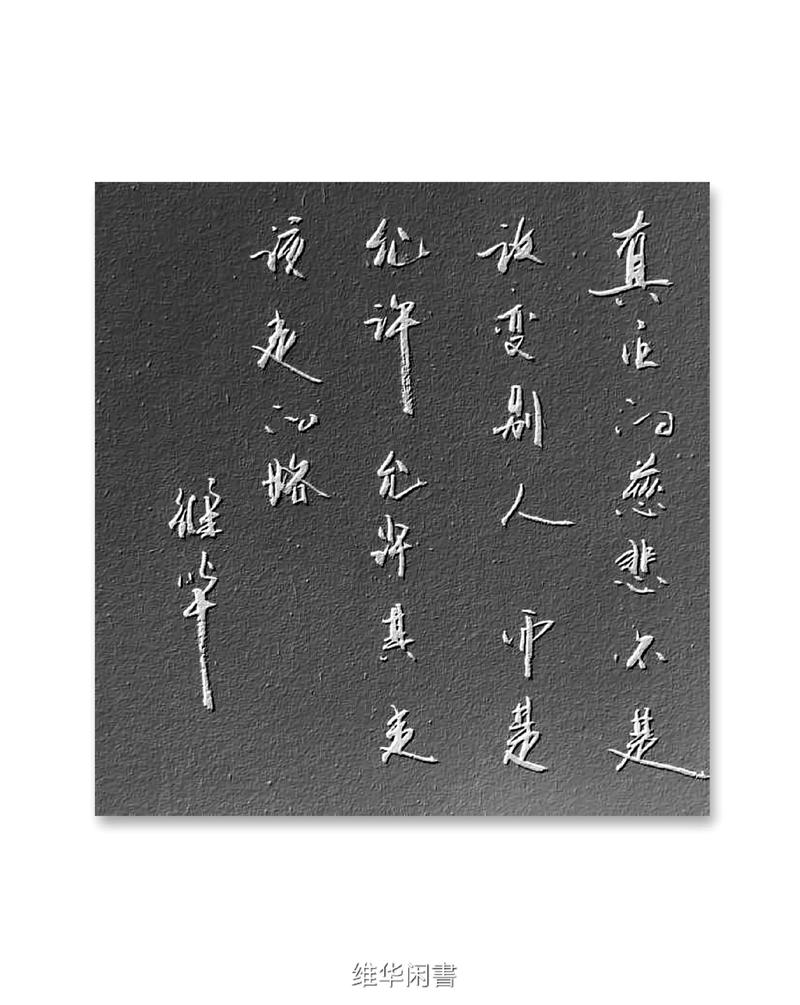 真正的慈悲不是
改变别人 而是
允许 允许其走
该走的路
维华
维华闲書